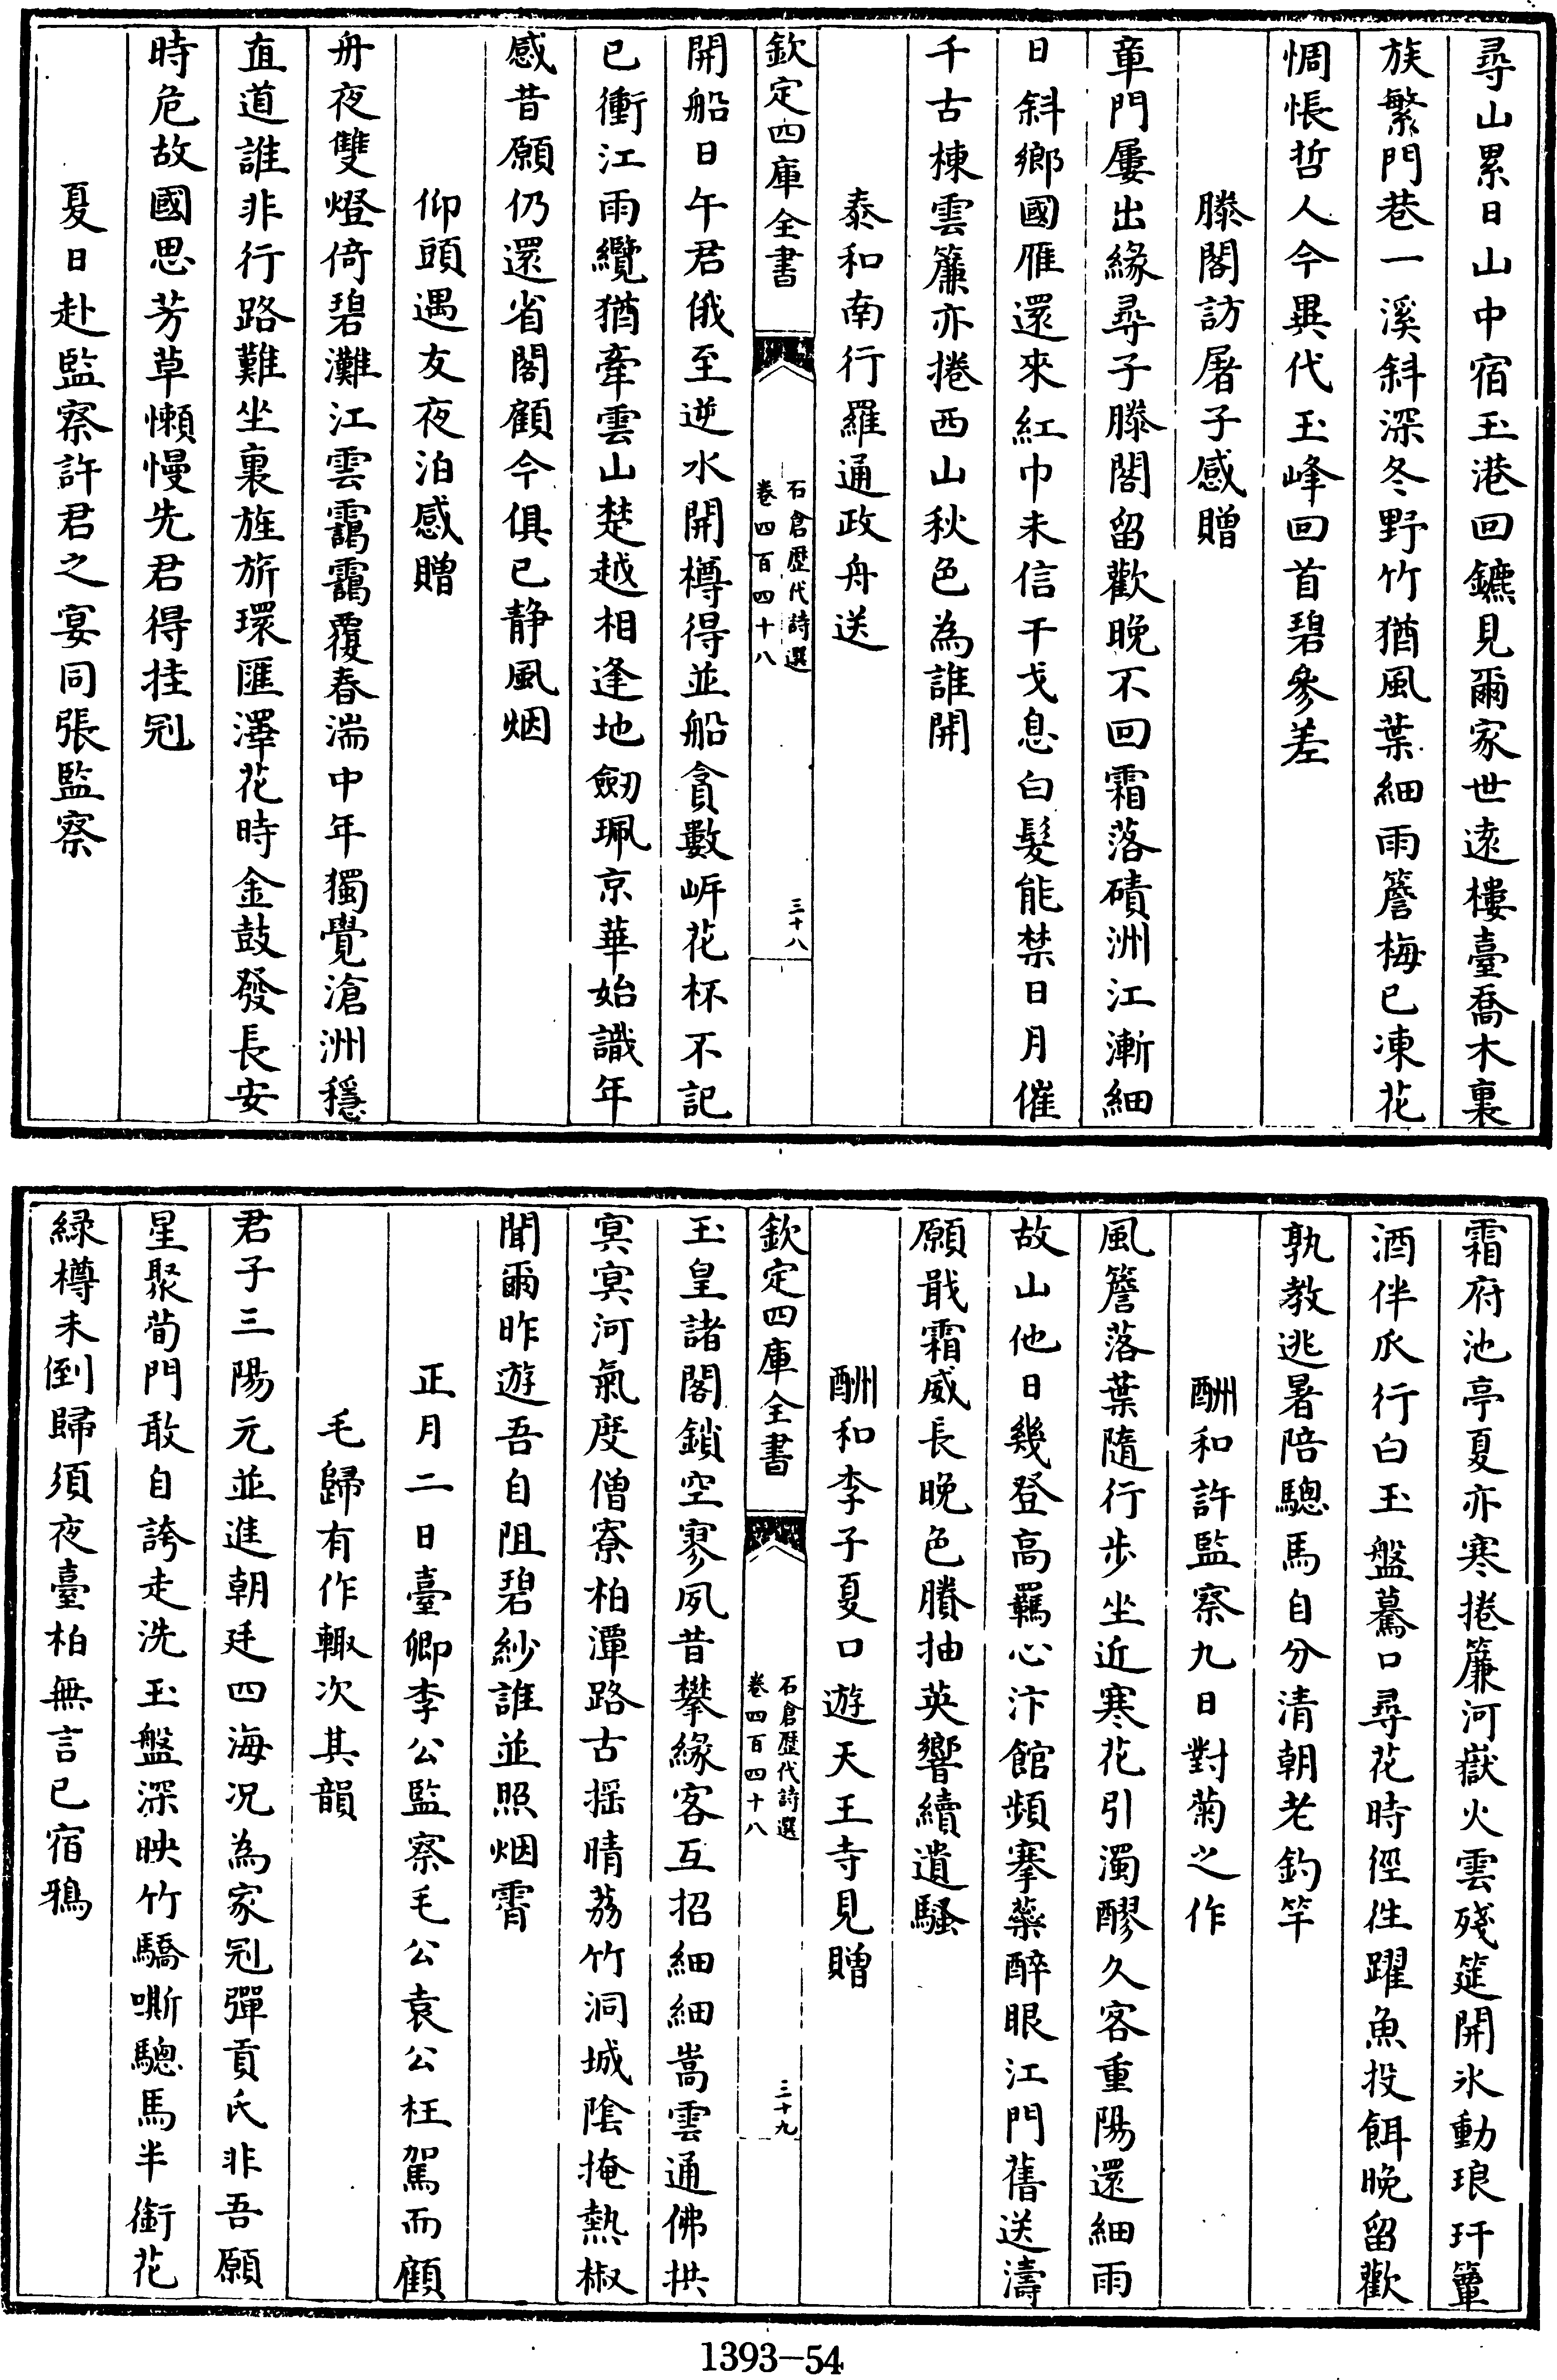 尋山累日山中宿玉港回鑣見爾家世遠樓臺喬木裏
族繁門巷一溪斜深冬野竹猶風葉細雨簷梅已凍花
惆悵哲人今異代玉峰回首碧參差
滕閣訪屠子感贈
章門屢出緣尋子滕閣留歡晚不回霜落磧洲江漸細
日斜鄉國雁還來紅巾未信干戈息白髮能禁日月催
千古棟雲簾亦捲西山秋色為誰開
泰和南行羅通政舟送
欽定四庫全書
石倉歷代詩選
卷四百四十八
三十八
開船日午君俄至逆水開樽得並船貪數岍花杯不記
已衝江雨纜猶牽雲山楚越相逢地劒珮京華始識年
感昔願仍還省閣顧今俱已静風烟
仰頭遇友夜泊感贈
舟夜雙燈倚碧灘江雲靄靄覆春湍中年獨覺滄洲穩
直道誰非行路難坐裏旌旂環匯澤花時金鼓發長安
時危故國思芳草懶慢先君得挂冠
夏日赴監察許君之宴同張監察
霜府池亭夏亦寒捲簾河嶽火雲殘筵開氷動琅玕簟
酒伴瓜行白玉盤驀口尋花時徑徃躍魚投餌晚留歡
孰教逃暑陪驄馬自分清朝老釣竿
酬和許監察九日對菊之作
風簷落葉隨行步坐近寒花引濁醪久客重陽還細雨
故山他日幾登高羈心汴館頻搴藥醉眼江門舊送濤
願戢霜威長晚色賸抽英響續遺騷
酬和李子夏口遊天王寺見贈
欽定四庫全書
石倉歷代詩選
卷四百四十八
三十九
玉皇諸閣鎖空寥夙昔攀緣客互招細細嵩雲通佛拱
冥冥河氣度僧寮柏潭路古揺晴荔竹洞城陰掩熱椒
聞爾昨遊吾自阻碧紗誰並照烟霄
正月二日臺卿李公監察毛公袁公枉駕而顧
毛歸有作輙次其韻
君子三陽元並進朝廷四海况為家冠彈貢氏非吾願
星聚荀門敢自誇走洗玉盤深映竹驕嘶驄馬半銜花
緑樽未倒歸須夜臺柏無言已宿鴉
1393—54